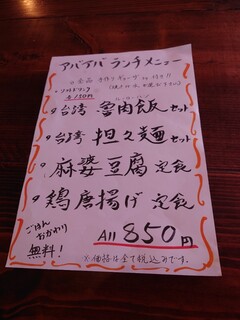 アバアバ ランチメニュー
ソフトドリンク
全150円
台湾 魯肉飯 セット
台湾 担々麺 セット
麻婆豆腐 定食
鶏唐揚げ 定食
ごはん
おかわり
無料!
All 850円
※価格は全て税込みです。